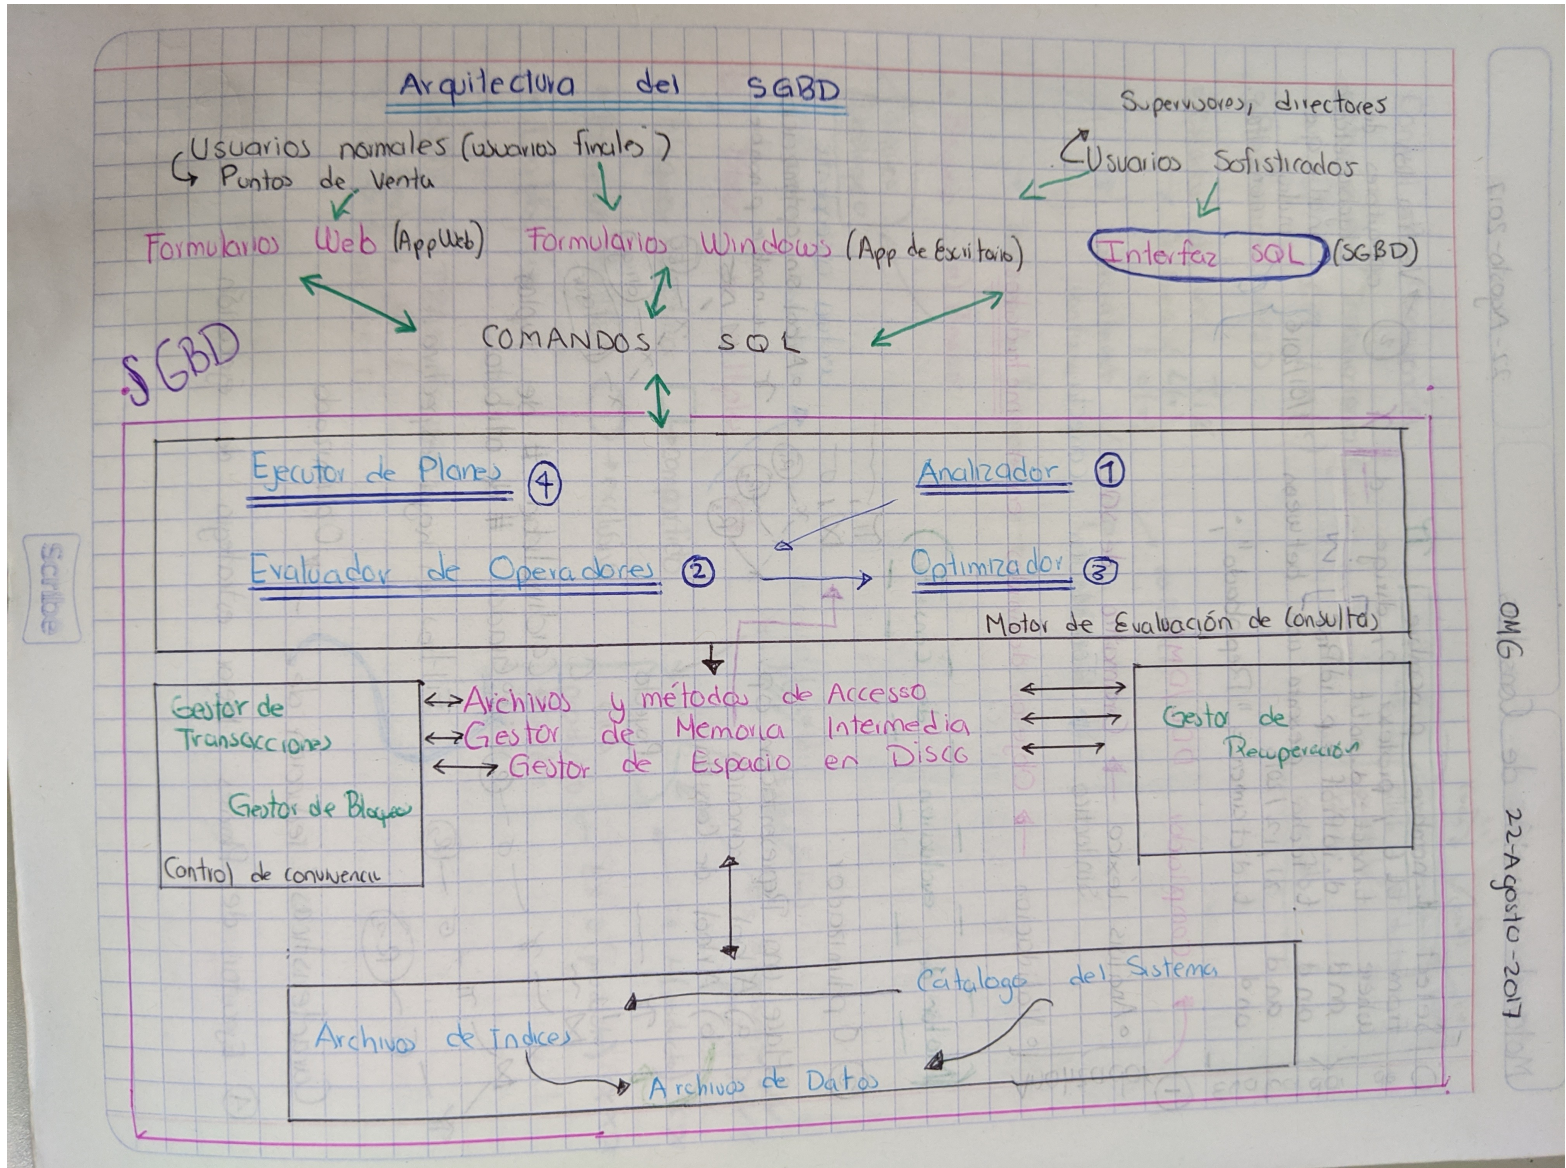 Arquitectura del SGBD
Supervisores, directores
Usuarios normales (usuarios finales)
Puntos de Venta
Usuarios Sofisticados
Formularios Web (App Web) Formularios Windows (App de Escritorio) Interfaz SQL (SGBD)
COMANDOS SQL
SGBD
Ejecutor de Planes 4 Analizador 1
Evaluador de Operadores 2 Optimizador 3
Motor de Evaluación de Consultas
Gestor de
Transacciones
Gestor de Bloqueo
Control de
Archivos y métodos de Accesso
Gestor de Memoria Intermedia
Gestor de Espacio en Disco
Gestor de
Recuperación
Catalogo del Sistema
Archivos de Indices
Archivos de Datos
Scribe
OMG 22-Agosto-2017